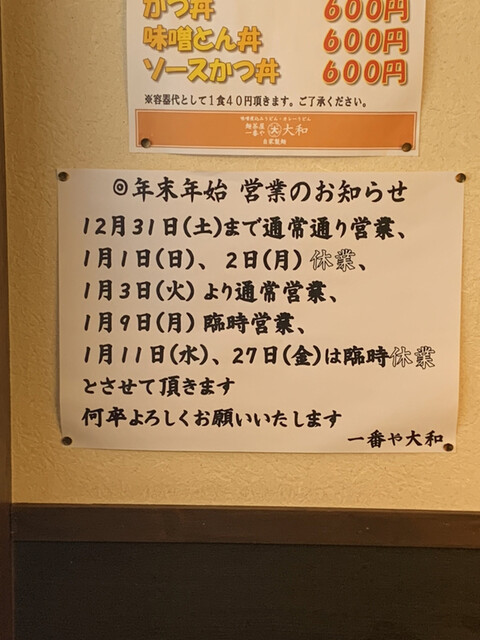 かつ丼 600円
味噌とん丼 600円
ソースかつ丼 600円
※容器代として1食40円頂きます。ご了承ください。
味噌煮込みうどん・カレーうどん
麺茶屋 一番や 大 大和
自家製麺
◎年末年始 営業のお知らせ
12月31日(土)まで通常通り営業、
1月1日(日)、2日(月)休業、
1月3日(火)より通常営業、
1月9日(月)臨時営業、
1月11日(水)、27日(金)は臨時休業
とさせて頂きます
何卒よろしくお願いいたします
一番や大和